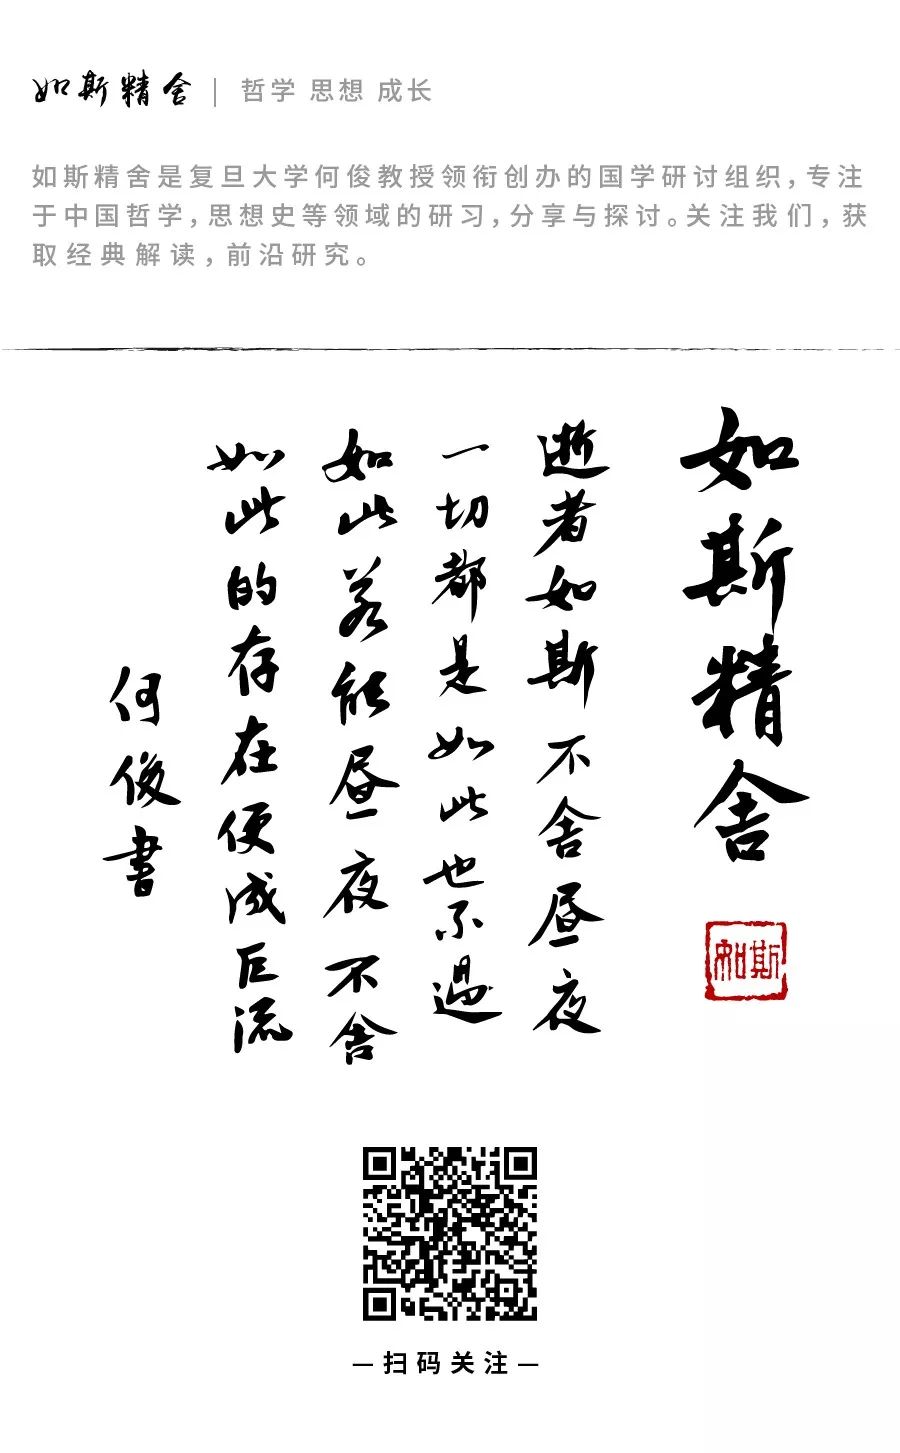 如斯精舍 | 哲学 思想 成长
如斯精舍是复旦大学何俊教授领衔创办的国学研讨组织，专注
于中国哲学，思想史等领域的研习，分享与探讨。关注我们，获
取经典解读，前沿研究。
如斯精舍
如斯
逝者如斯不舍昼夜
一切都是如此也不过
如此若能昼夜不舍
如此的存在便成巨流
何俊書
—扫码关注—